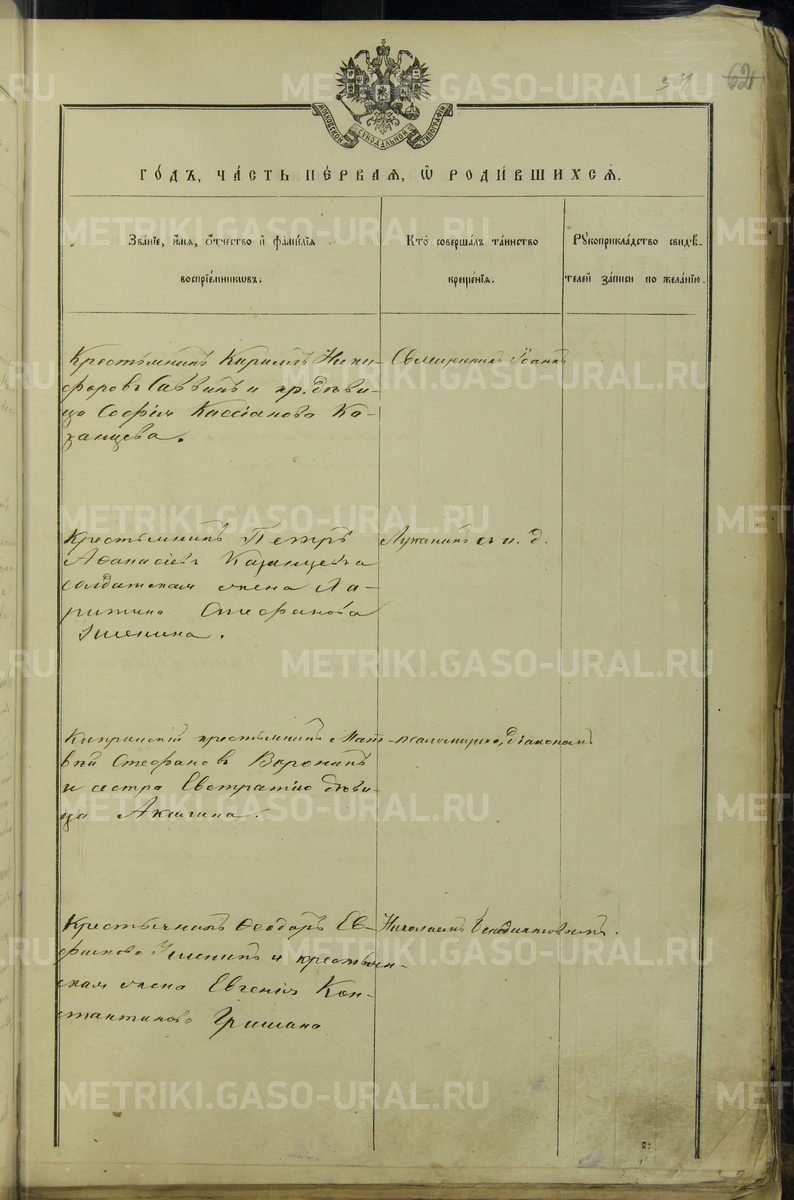 62
МОСКОВСКОЙ СѴНОДАЛЬНОЙ ТИПОГРАФІИ
ГО́ДЪ, ЧА́СТЬ ПЕ́РВАЯ, Ѡ҆ РОДИ́ВШИХСѦ.
Зва́нїе, и҆́мѧ, ѻ҆́тчество и҆ фами́лїѧ
воспрїе́мникѡвъ.
Кто̀ соверша́лъ та́инство
креще́нїѧ.
Рꙋкоприкла́дство свидѣ́-
телей за́писи по жела́нїю.
Крестьянинъ Кирилъ Ники-
форовъ Саввинъ и кр. дѣви-
ца Софія Кассіанова Ка-
занцева.
Священникъ Іоаннъ
Крестьянинъ Петръ
Аѳанасіевъ Казанцевъ и
солдатская жена Ла-
Стефанова
Лукинъ съ и. д.
крестьянинъ Мат-
вѣй Стефановъ Воронинъ
и сестра Евстратію дѣви-
ца Акилина.
псаломщика, діакономъ
Крестьянинъ Ѳеодоръ Ев-
и крестьян-
ская жена Евгенія Кон-
стантинова Гришина
Николаемъ
METRIKI.GASO-URAL.RU